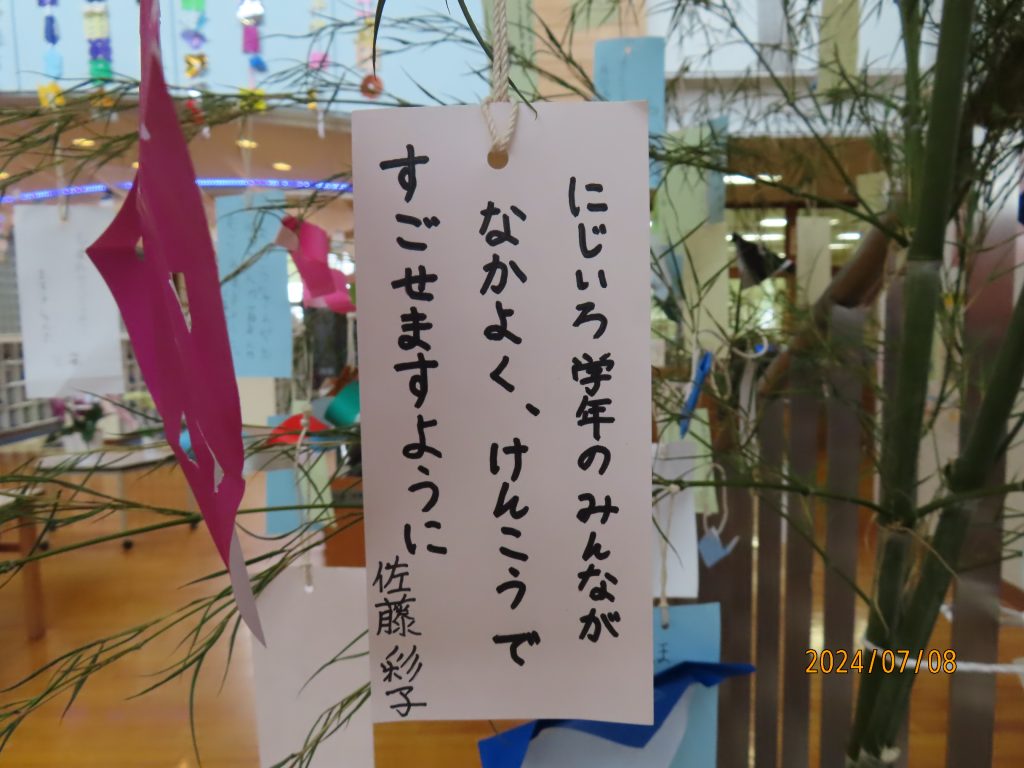 にじいろ学年のみんなが
なかよく、けんこうで
すごせますように
佐藤彩子
2024/07/08